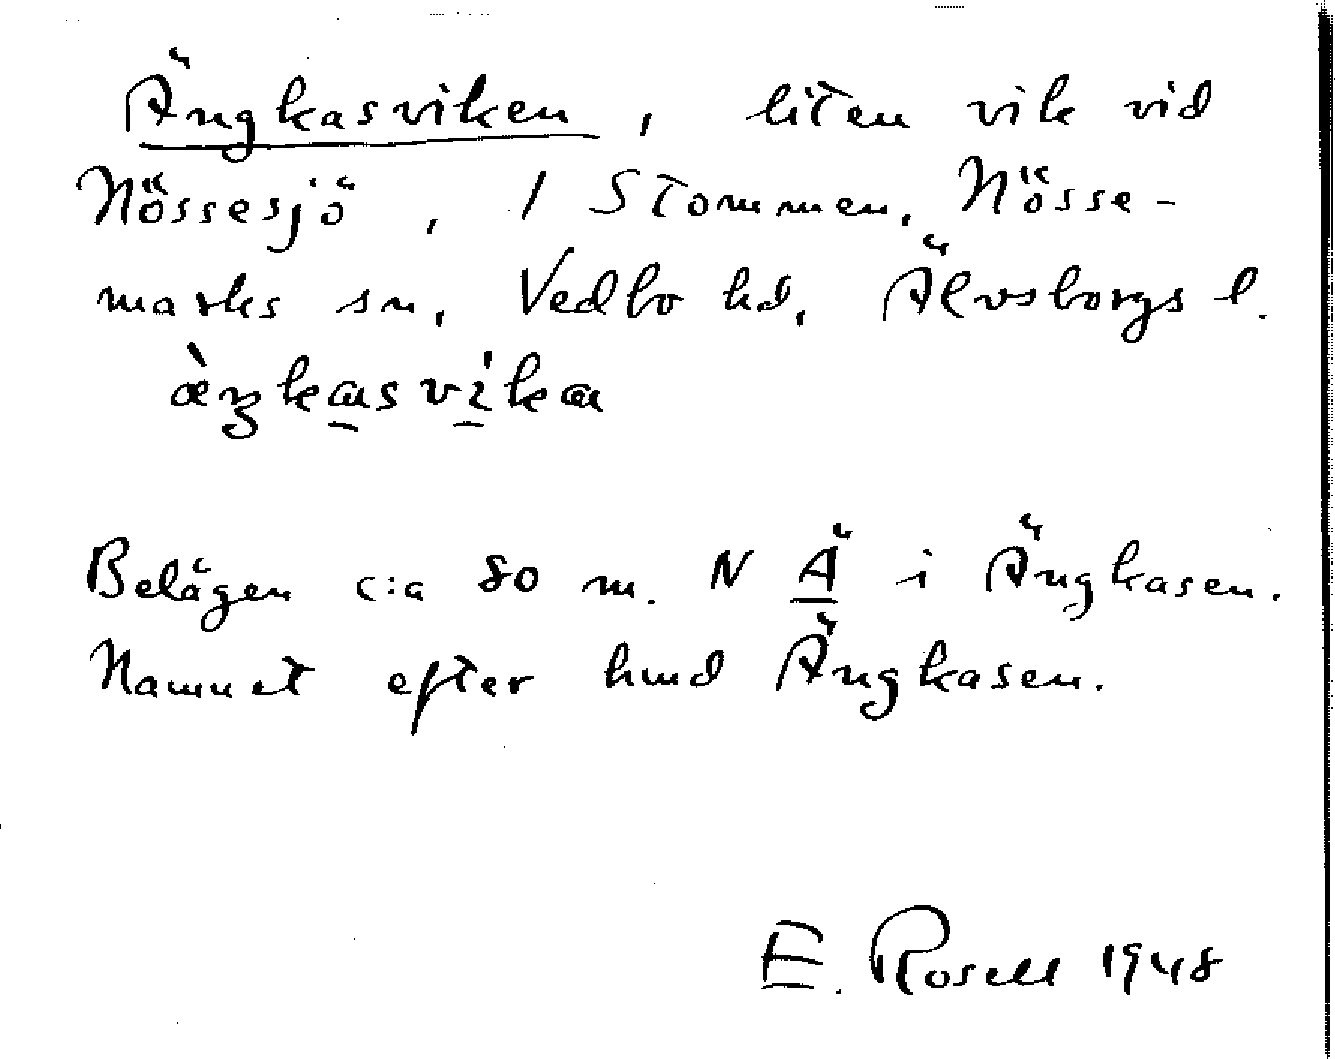 Ängkasviken, liten vik vid
Nössesjö, 1 Stommen, Nösse-
marks sn, Vedbo hd, Älvsborgs l.
æ̀ŋkasvika
Belägen c:a 80 m. N Ä i Ängkasen.
Namnet efter hmd Ängkasen.
E. Rosell 1948